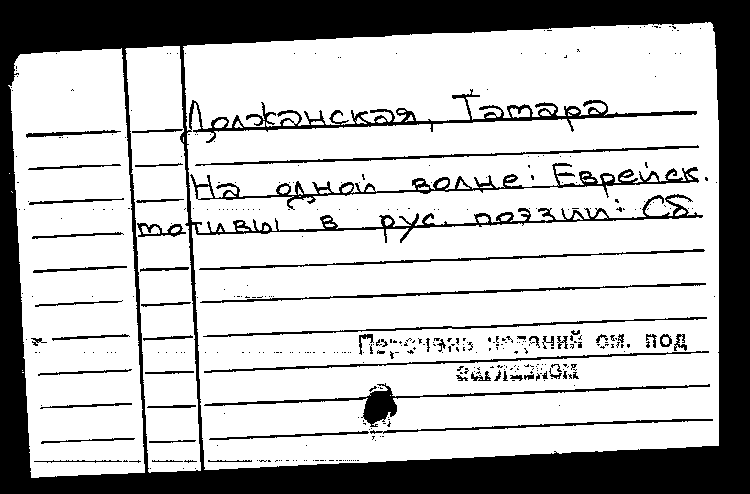 Должанская, Тамара.
На одной волне: Еврейск.
мотивы в рус. поэзии: Сб.
Перечень изданий см. под
заглавием